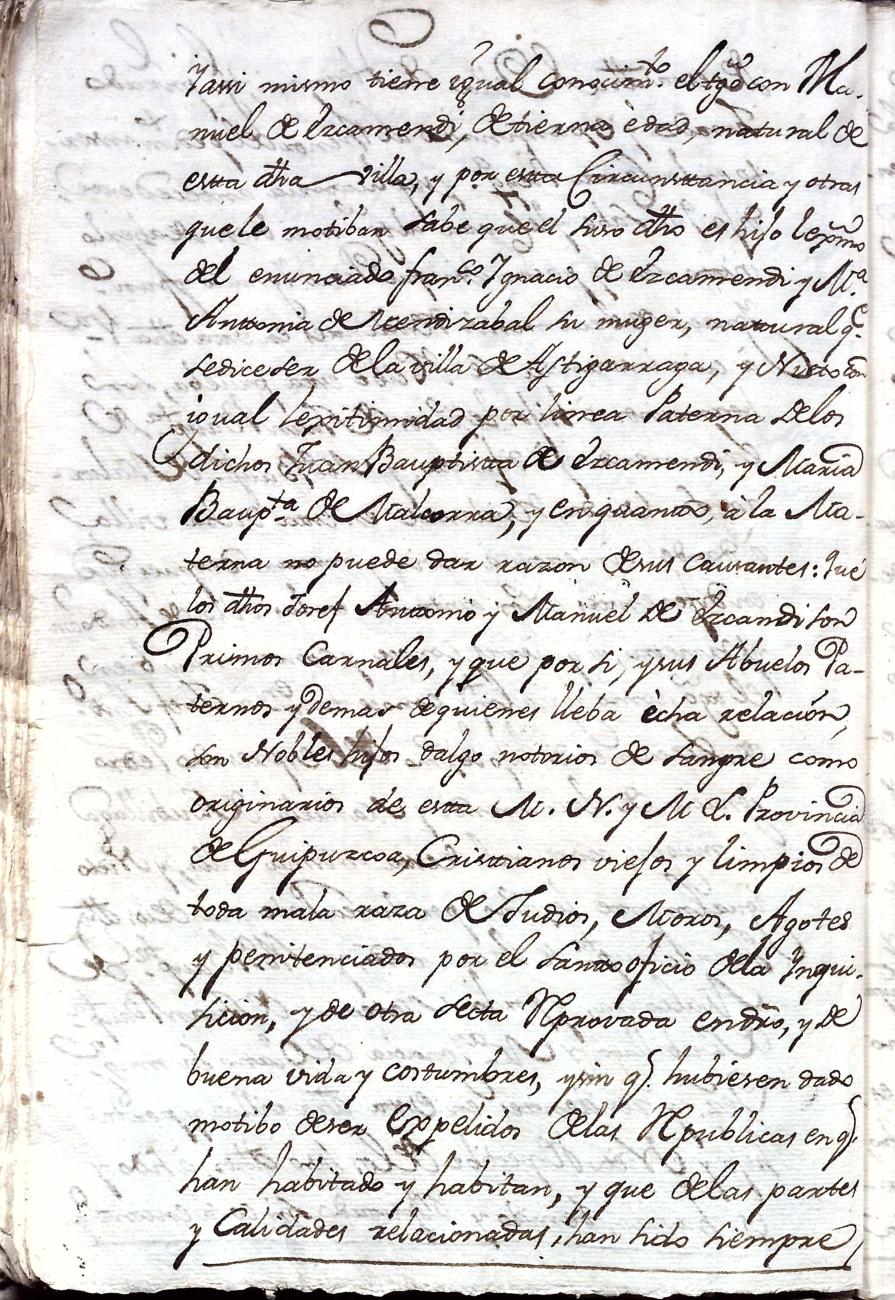 Yassi mismo tiene igual conocim.to el tgo con Ma-
nuel de Ezcamendi, de tierna èdad, natural de
estta dha villa, y por estta Circunsttancia y otras
que le motiban sabe que el suso dho es hijo lexmo
del enunciado fran.co Ygnacio de Ezcamendi y M.a
Anttonia de Mendizabal su muger, natural q.e
se dice ser de la villa de Astigarraga, y Nieto con
igual lexitimidad por linea Paterna de los
dichos Juan Bauptistta de Ezcamendi, y Maria
Baup.ta de Malcorra, y en quantto, à la Ma-
terna no puede dar razon de sus Causantes: Que
los dhos Josef Anttonio y Manuel de Ezcandi son
Primos Carnales, y que por si, y sus Abuelos Pa-
ternos y demas de quienes lleba ècha relación,
son Nobles hijos dalgo notorios de sangre como
originarios de estta M. N. y M. L. Provincia
de Guipuzcoa, Cristtianos viejos y limpios de
toda mala raza de Judios, Moros, Agotes
y penitenciados por el santto oficio de la Ynqui-
sicion, y de otra secta Rprovada en dro, y de
buena vida y costumbres, y sin q.e hubiesen dado
motibo de ser expelidos de las Rpublicas en q.e
han habitado y habitan, y que de las partes
y Calidades relacionadas, han sido siempre